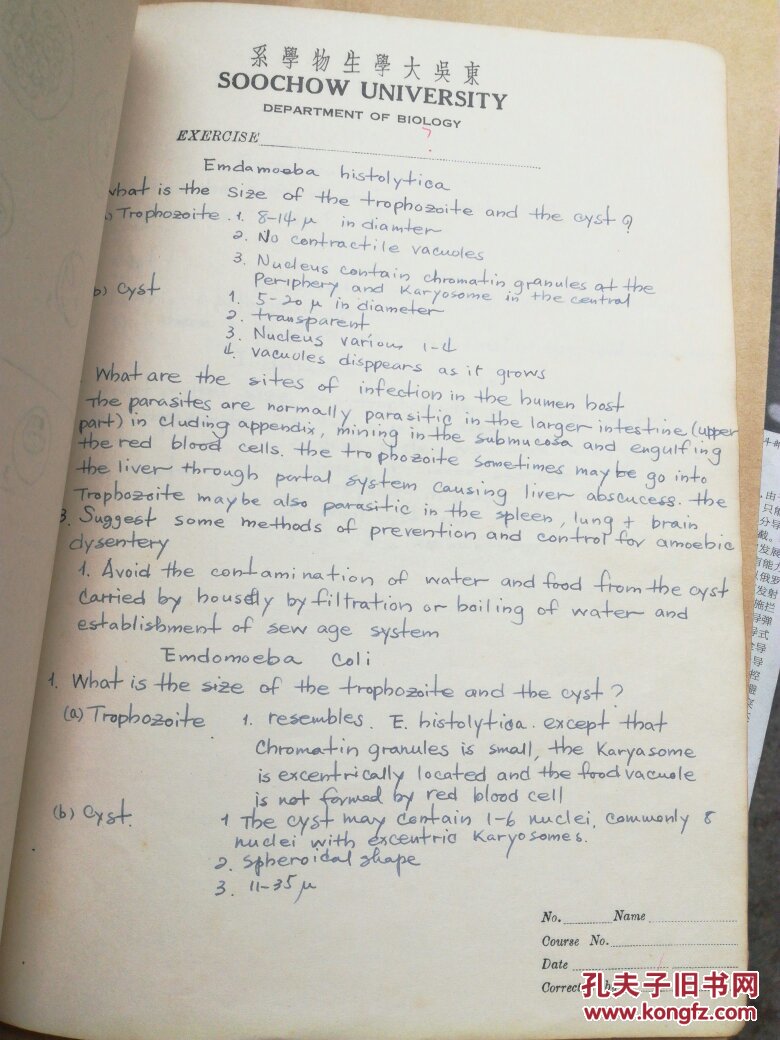 系學物生學大吳東
SOOCHOW UNIVERSITY
DEPARTMENT OF BIOLOGY
EXERCISE
?
Emdamoeba histolytica
what is the size of the trophozoite and the cyst?
) Trophozoite. 1. 8-14 μ in diamter
2. No contractile vacuoles
3. Nucleus contain chromatin granules at the
Periphery and Karyosome in the central
b) Cyst 1. 5-20 μ in diameter
2. transparent
3. Nucleus various 1-4
4. vacuoles disppears as it grows
What are the sites of infection in the human host
the parasites are normally parasitic in the larger intestine (upper
part) in cluding appendix, mining in the submucosa and engulfing
the red blood cells. the trophozoite sometimes maybe go into
the liver through portal system causing liver abscucess. the
Trophozoite maybe also parasitic in the spleen, lung + brain
3. Suggest some methods of prevention and control for amoebic
dysentery
1. Avoid the contamination of water and food from the cyst
carried by housefly by filtration or boiling of water and
establishment of sew age system
Emdomoeba Coli
1. What is the size of the trophozoite and the cyst?
(a) Trophozoite 1. resembles. E. histolytica. except that
chromatin granules is small, the Karyasome
is excentrically located and the food vacuole
is not formed by red blood cell
(b) Cyst. 1 The cyst may contain 1-6 nuclei, commonly 8
nuclei with excentric Karyosomes.
2. Spheroidal shape
3. 11-35 μ
No. Name
Course No.
Date
Correct
孔夫子旧书网
www.kongfz.com
由
只能
分导
截。
发展
有能力
以俄罗
发射
施拦
导弹
导式
导
导
控